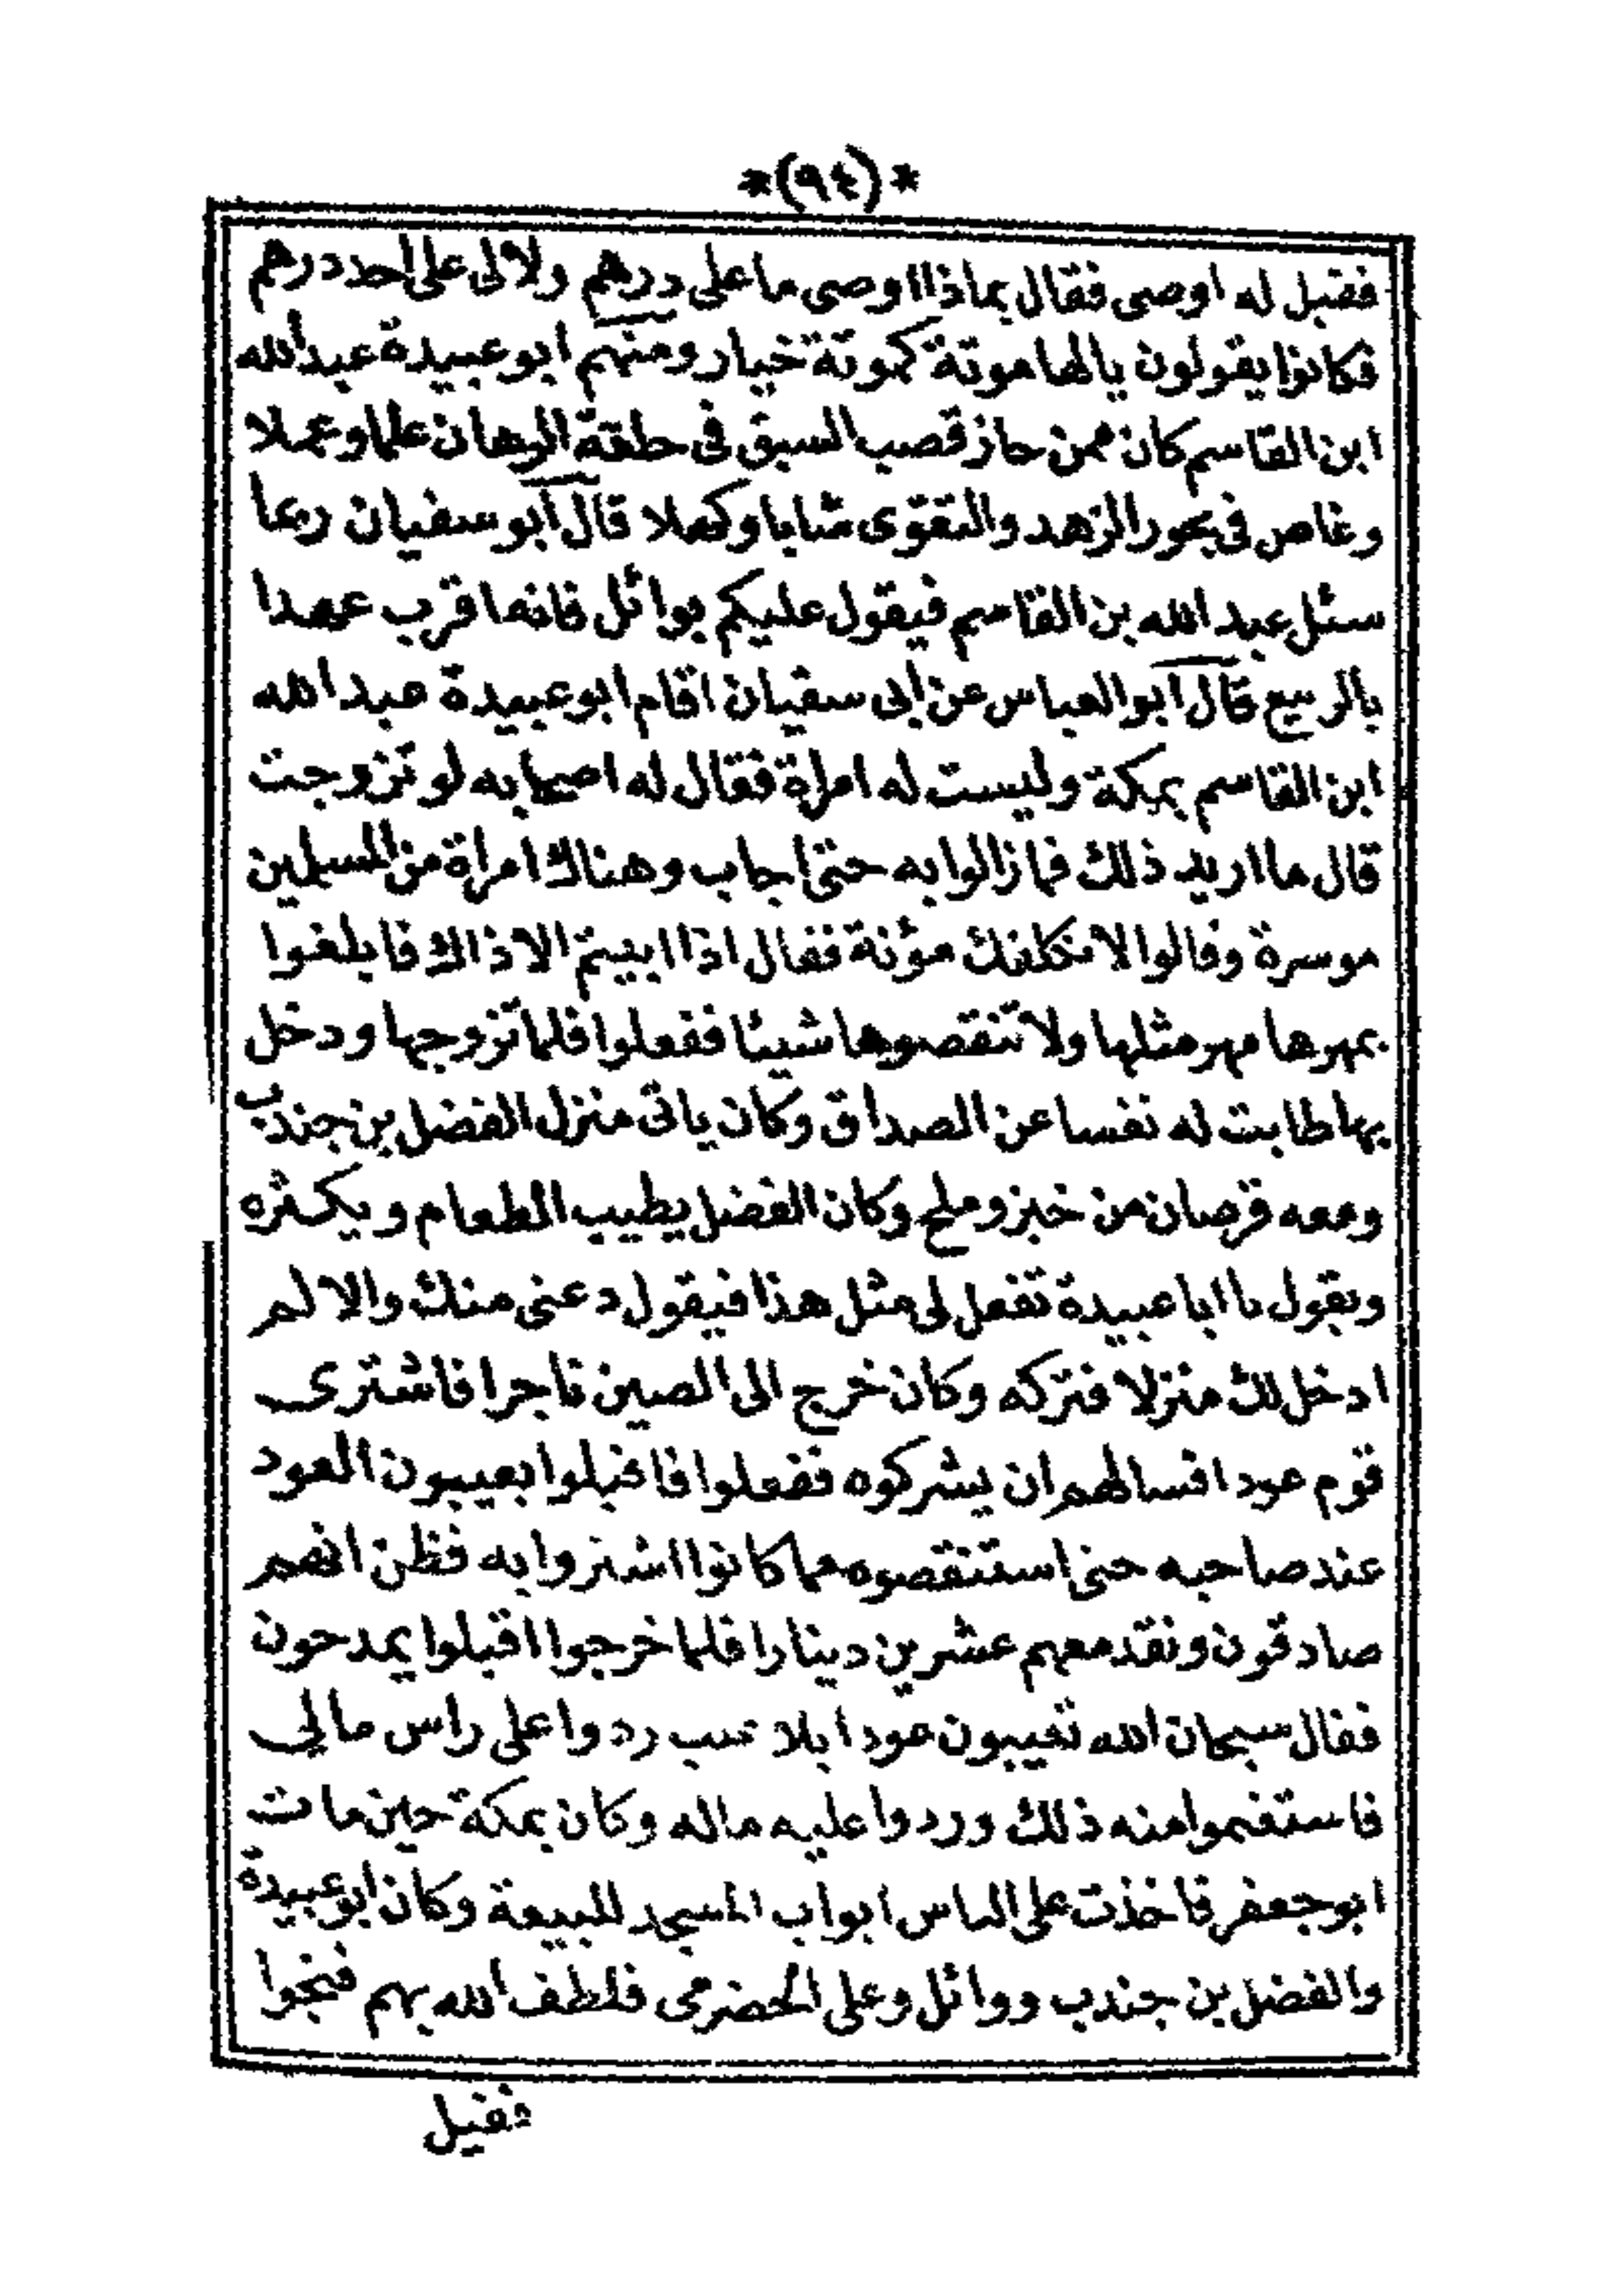 *(٩٤)*
فقيل له اوصى فقال بماذا اوصى ما على درهم ولا لى على احد درهم
فكانوا يقولون يالها موتة كموتة خيار ومنهم ابو عبيدة عبد الله
ابن القاسم كان ممن حاز قصب السبق فى حلقة الرهان علما وعملا
وغاص فى بحور الزهد والتقوى شابا وكهلا قال ابو سفيان ربما
سئل عبد الله بن القاسم فيقول عليكم بوائل فانه اقرب عهدا
بالربيع قال ابو العباس عن ابى سفيان اقام ابو عبيدة عبد الله
ابن القاسم بمكة وليست له امراة فقال له اصحابه لو تزوجت
قال ما اريد ذلك فما زالوا به حتى اجاب وهناك امراة من المسلمين
موسرة وقالوا لا نكلفك مؤنة فقال اذا ابيتم الا ذاك فابلغوا
بمهرها مهر مثلها ولا تنقصوها شيئا ففعلوا فلما تزوجها ودخل
بها طابت له نفسا عن الصداق وكان ياتى منزل الفضل بن جندب
ومعه قرصان من خبز وملح وكان الفضل يطيب الطعام ويكثره
ويقول يا ابا عبيدة تفعل لى مثل هذا فيقول دعنى منك والا لم
ادخل لك منزلا فتركه وكان خرج الى الصين تاجرا فاشترى
قوم عودا فسالهم ان يشركوه ففعلوا فاقبلوا يعيبون العود
عند صاحبه حتى استنقصوه مما كانوا اشتروا به فظن انهم
صادقون ونقد معهم عشرين دينارا فلما خرجوا اقبلوا يمدحون
فقال سبحان الله تعيبون عودا بلا عيب ردوا على راس مالي
فاستغنموا منه ذلك وردوا عليه ماله وكان بمكة حين مات
ابو جعفر فاخذت على الناس ابواب المسجد للبيعة وكان ابو عبيدة
والفضل بن جندب ووائل وعلى الحضرمى فلطف الله بهم فنجوا
فقيل